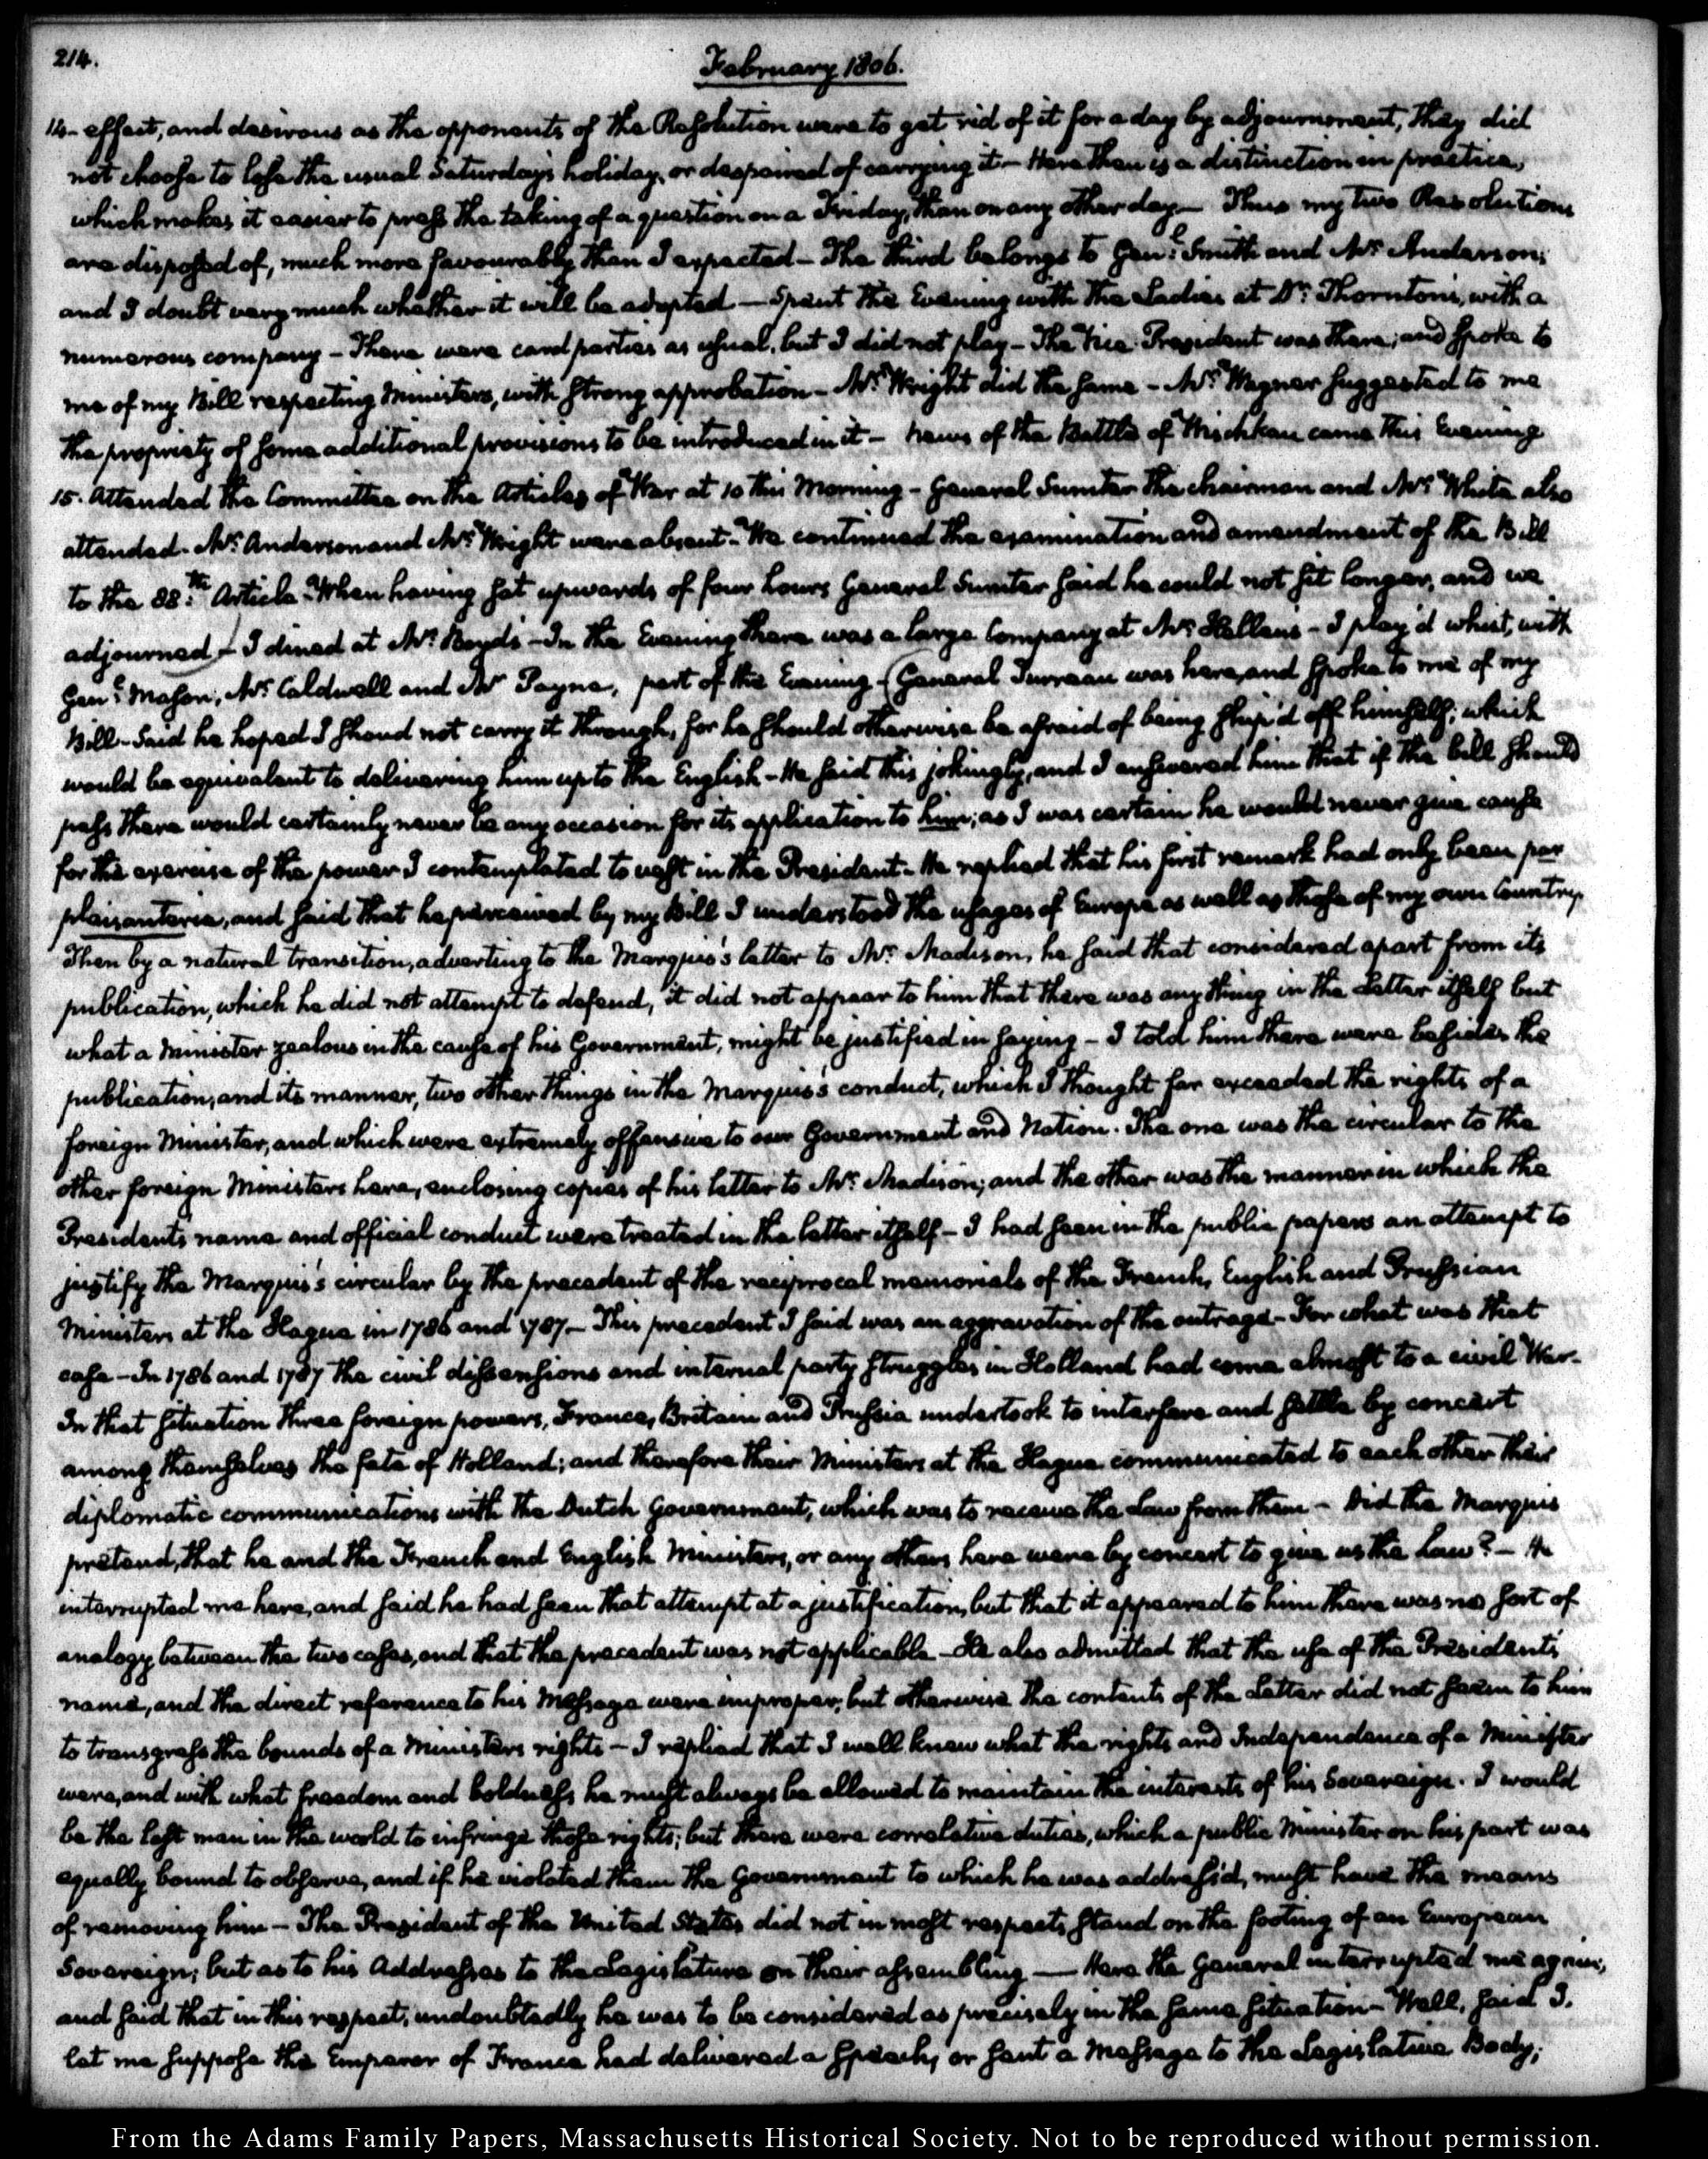 214.
February 1806.
14- effect, and desirous as the opponents of the Resolution were to get rid of it for a day by adjournment, they did
not choose to lose the usual Saturday's holiday, or despaired of carrying it— Here then is a distinction in practice,
which makes it easier to press the taking of a question on a Friday, than on any other day— Thus my two Resolutions
are disposed of, much more favourably than I expected— The third belongs to Genl. Smith and Mr. Anderson;
and I doubt very much whether it will be adopted— Spent the Evening with the Ladies at Dr. Thornton's, with a
numerous company— There were card parties as usual, but I did not play— The Vice President was there; and spoke to
me of my Bill respecting Ministers, with strong approbation— Mr. Wright did the same— Mr. Wagner suggested to me
the propriety of some additional provisions to be introduced in it— News of the Battle of Wischkau came this Evening
15. Attended the Committee on the Articles of War at 10 this Morning— General Sumter the chairman and Mr. White also
attended. Mr. Anderson and Mr. Wright were absent— We continued the examination and amendment of the Bill
to the 88th. Article— When having sat upwards of four hours General Sumter said he could not sit longer, and we
adjourned— I dined at Mr. Boyd's— In the Evening there was a large Company at Mr. Hellen's— I play'd whist, with
Genl. Mason, Mr. Caldwell and Mr Payne, part of the Evening— (General Turreau was here, and spoke to me of my
Bill— Said he hoped I shoud not carry it through, for he should otherwise be afraid of being ship'd off himself; which
would be equivalent to delivering him up to the English— He said this jokingly, and I answered him that if the bill should
pass there would certainly never be any occasion for its application to him; as I was certain he would never give cause
for the exercise of the power I contemplated to vest in the President— He replied that his first remark had only been par
plaisanterie, and said that he perceived by my Bill I understood the usages of Europe as well as those of my own Country.
Then by a natural transition, adverting to the Marquis's letter to Mr. Madison, he said that considered apart from its
publication, which he did not attempt to defend, it did not appear to him that there was any thing in the Letter itself but
what a Minister zealous in the cause of his Government, might be justified in saying— I told him there were besides the
publication, and its manner, two other things in the Marquis's conduct, which I thought far exceeded the rights of a
foreign Minister, and which were extremely offensive to our Government and Nation. The one was the circular to the
other foreign Ministers here, enclosing copies of his letter to Mr. Madison; and the other was the manner in which the
President's name and official conduct were treated in the letter itself— I had seen in the public papers an attempt to
justify the Marquis's circular by the precedent of the reciprocal memorials of the French, English and Prussian
Ministers at the Hague in 1786 and 1787— This precedent I said was an aggravation of the outrage— For what was that
case— In 1786 and 1787 the civil dissensions and internal party struggles in Holland had come almost to a civil War.
In that situation three foreign powers, France, Britain and Prussia undertook to interfere and settle by concert
among themselves the fate of Holland; and therefore their Ministers at the Hague communicated to each other their
diplomatic communications with the Dutch Government, which was to receive the Law from them— Did the Marquis
pretend, that he and the French and English Ministers, or any others here were by concert to give us the Law?— He
interrupted me here, and said he had seen that attempt at a justification, but that it appeared to him there was no sort of
analogy between the two cases, and that the precedent was not applicable— He also admitted that the use of the President's
name, and the direct reference to his Message were improper; but otherwise the contents of the Letter did not seem to him
to transgress the bounds of a Minister's rights— I replied that I well knew what the rights and Independence of a Minister
were, and with what freedom and boldness he must always be allowed to maintain the interests of his Sovereign. I would
be the last man in the world to infringe those rights; but there were correlative duties, which a public Minister on his part was
equally bound to observe, and if he violated them the Government to which he was address'd, must have the means
of removing him— The President of the United States did not in most respects stand on the footing of an European
Sovereign; but as to his Addresses to the Legislature on their assembling— Here the General interrupted me again,
and said that in this respect, undoubtedly he was to be considered as precisely in the same situation— Well, said I,
let me suppose the Emperor of France had delivered a speech, or sent a Message to the Legislative Body;
From the Adams Family Papers, Massachusetts Historical Society. Not to be reproduced without permission.